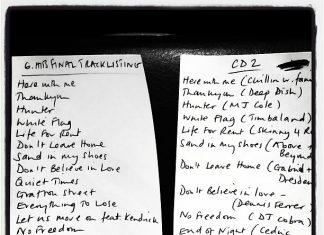 G. HITS FINAL TRACKLISTING
Here with me
Thankyou
Hunter
White Flag
Life For Rent
Don't Leave Home
Sand in my shoes
Don't Believe in Love
Quiet Times
Grafton street
Everything To Lose
Let us move on feat. Kendrick
No Freedom
CD2
Here with me (Chillin w. fam
Thankyou (Deep Dish)
Hunter (MJ Cole)
White Flag (Timbaland)
Life For Rent (Skinny 4 R
Sand in my shoes (Above +
Beyond
Don't Leave Home (Gabriel +
Dresden
Don't Believe in love -
(Dennis Ferrer)
No Freedom (DJ Cobra)
End of Night (Cedric